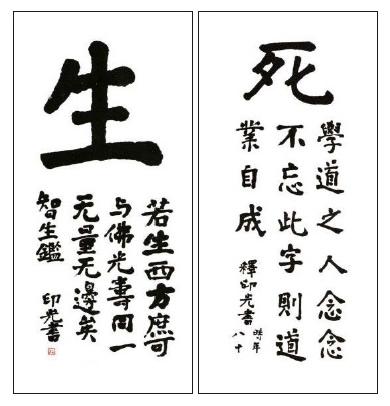 死
學道之人念念
不忘此字則道
業自成
釋印光書
時年
八十
生
若生西方庶可
与佛光壽同一
无量无邊矣
智生鑑
印光書